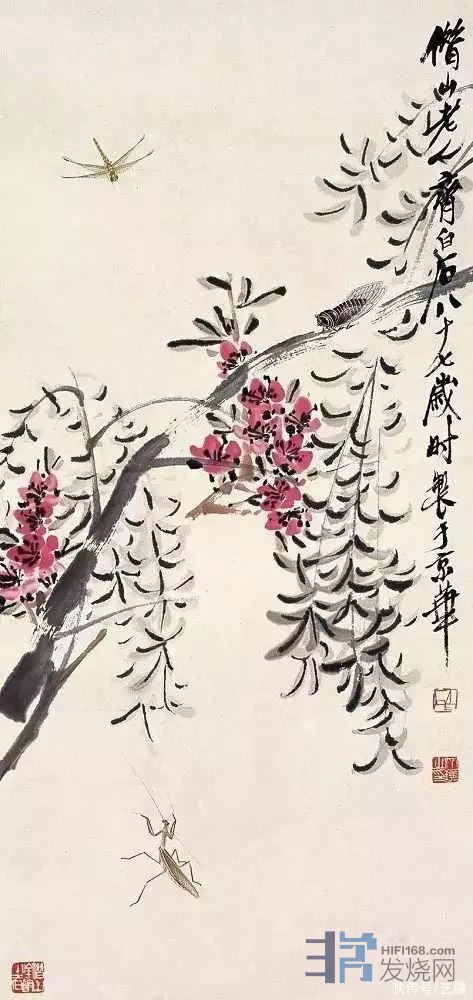 借山老人齊白石八十七歲時製于京華
HIFI168.COM
发烧网
快传号/艺境